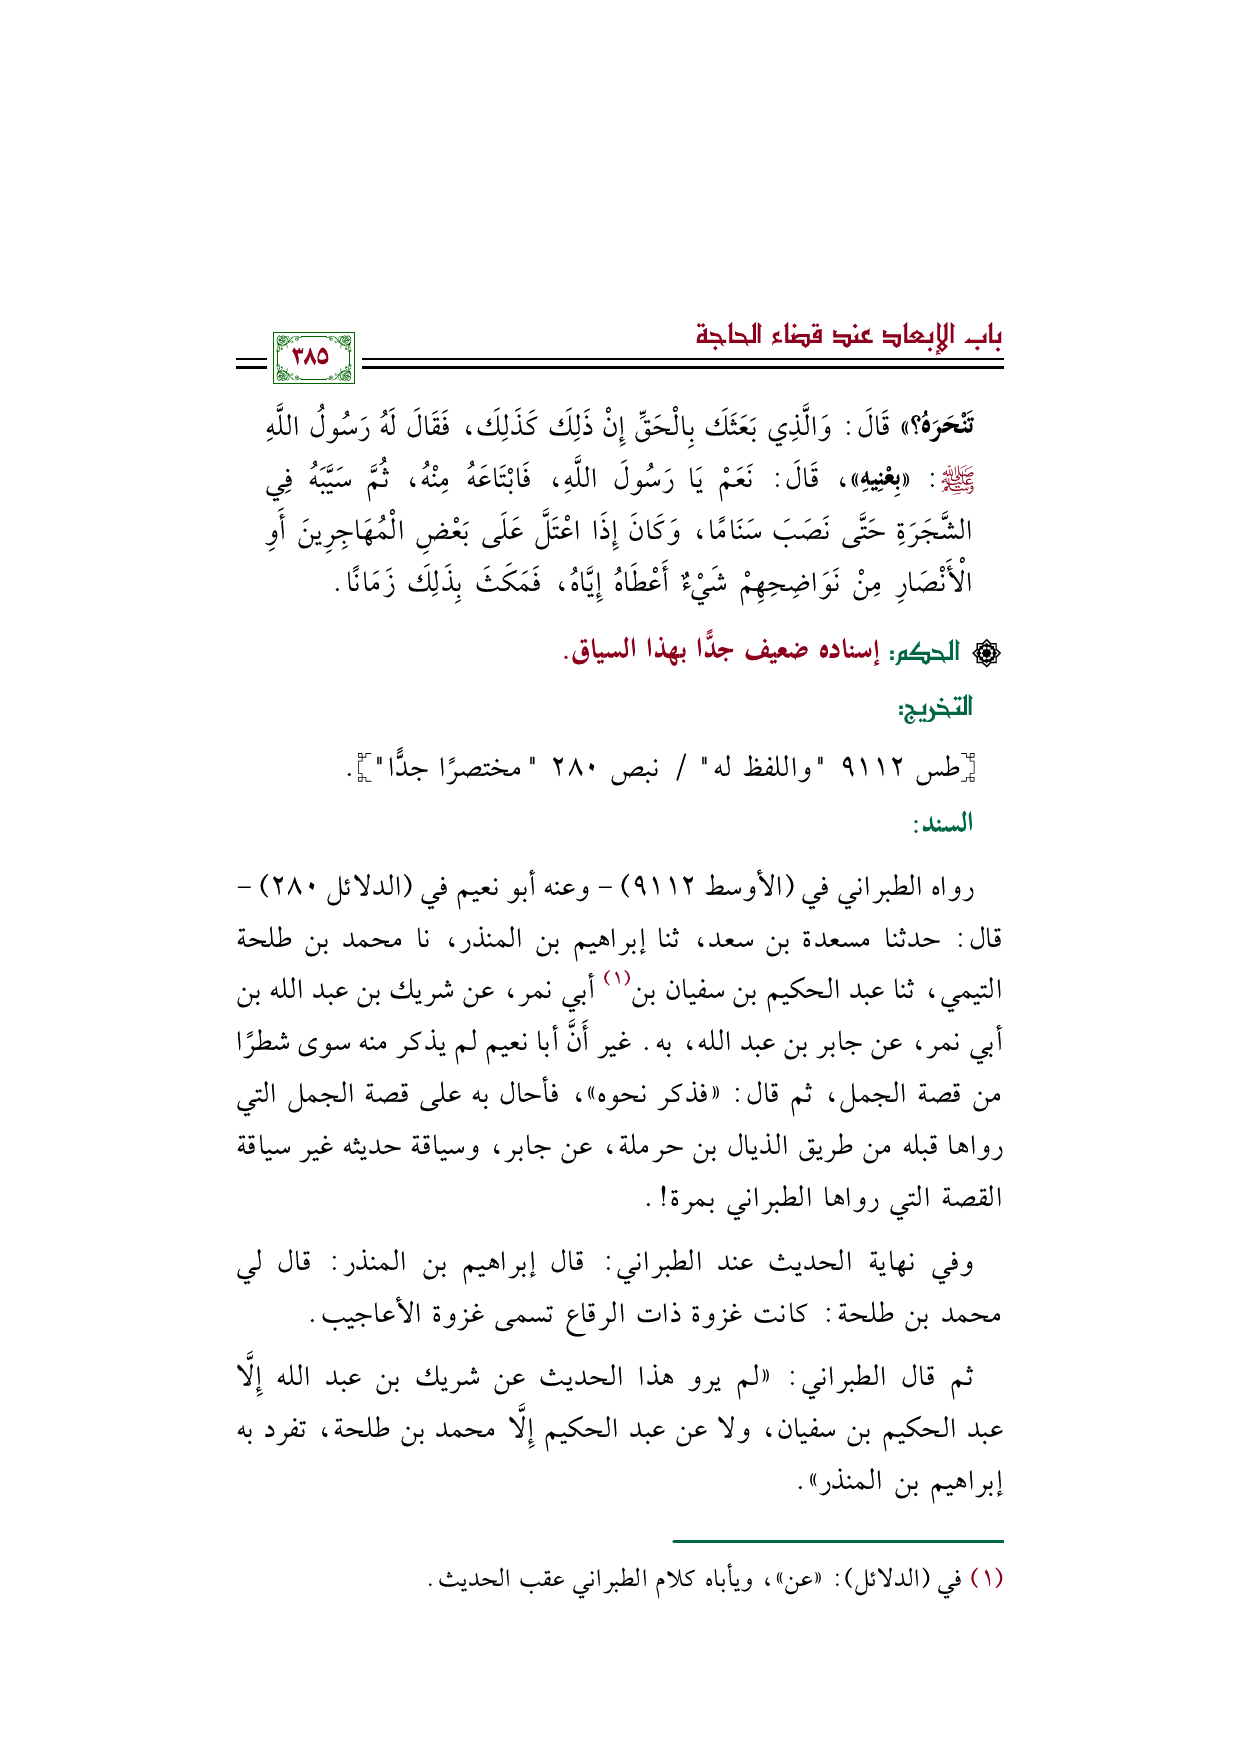 باب الإبعاد عند قضاء الحاجة
٣٨٥
تَنْحَرَهُ؟» قَالَ: وَالَّذِي بَعَثَكَ بِالْحَقِّ إِنْ ذَلِكَ كَذَلِكَ، فَقَالَ لَهُ رَسُولُ اللَّهِ
ﷺ: «بِعْنِيهِ»، قَالَ: نَعَمْ يَا رَسُولَ اللَّهِ، فَابْتَاعَهُ مِنْهُ، ثُمَّ سَيَّبَهُ فِي
الشَّجَرَةِ حَتَّى نَصَبَ سَنَامًا، وَكَانَ إِذَا اعْتَلَّ عَلَى بَعْضِ الْمُهَاجِرِينَ أَوِ
الْأَنْصَارِ مِنْ نَوَاضِحِهِمْ شَيْءٌ أَعْطَاهُ إِيَّاهُ، فَمَكَثَ بِذَلِكَ زَمَانًا.
الحكم: إسناده ضعيف جدًّا بهذا السياق.
التخريج:
[طس ٩١١٢ "واللفظ له" / نبص ٢٨٠ "مختصرًا جدًّا"].
السند:
رواه الطبراني في (الأوسط ٩١١٢) – وعنه أبو نعيم في (الدلائل ٢٨٠) –
قال: حدثنا مسعدة بن سعد، ثنا إبراهيم بن المنذر، نا محمد بن طلحة
التيمي، ثنا عبد الحكيم بن سفيان بن(١) أبي نمر، عن شريك بن عبد الله بن
أبي نمر، عن جابر بن عبد الله، به. غير أَنَّ أبا نعيم لم يذكر منه سوى شطرًا
من قصة الجمل، ثم قال: «فذكر نحوه»، فأحال به على قصة الجمل التي
رواها قبله من طريق الذيال بن حرملة، عن جابر، وسياقة حديثه غير سياقة
القصة التي رواها الطبراني بمرة!.
وفي نهاية الحديث عند الطبراني: قال إبراهيم بن المنذر: قال لي
محمد بن طلحة: كانت غزوة ذات الرقاع تسمى غزوة الأعاجيب.
ثم قال الطبراني: «لم يرو هذا الحديث عن شريك بن عبد الله إِلَّا
عبد الحكيم بن سفيان، ولا عن عبد الحكيم إِلَّا محمد بن طلحة، تفرد به
إبراهيم بن المنذر».
(١) في (الدلائل): «عن»، ويأباه كلام الطبراني عقب الحديث.